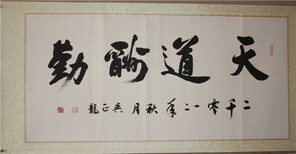 天道酬勤
二千零一二年秋月吴正龍